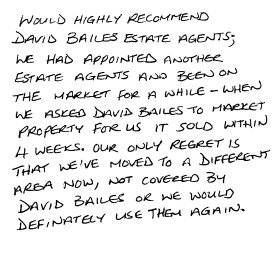 WOULD HIGHLY RECOMMEND
DAVID BAILES ESTATE AGENTS;
WE HAD APPOINTED ANOTHER
ESTATE AGENTS AND BEEN ON
THE MARKET FOR A WHILE - WHEN
WE ASKED DAVID BAILES TO MARKET
PROPERTY FOR US IT SOLD WITHIN
4 WEEKS. OUR ONLY REGRET IS
THAT WE'VE MOVED TO A DIFFERENT
AREA NOW, NOT COVERED BY
DAVID BAILES OR WE WOULD
DEFINATELY USE THEM AGAIN.